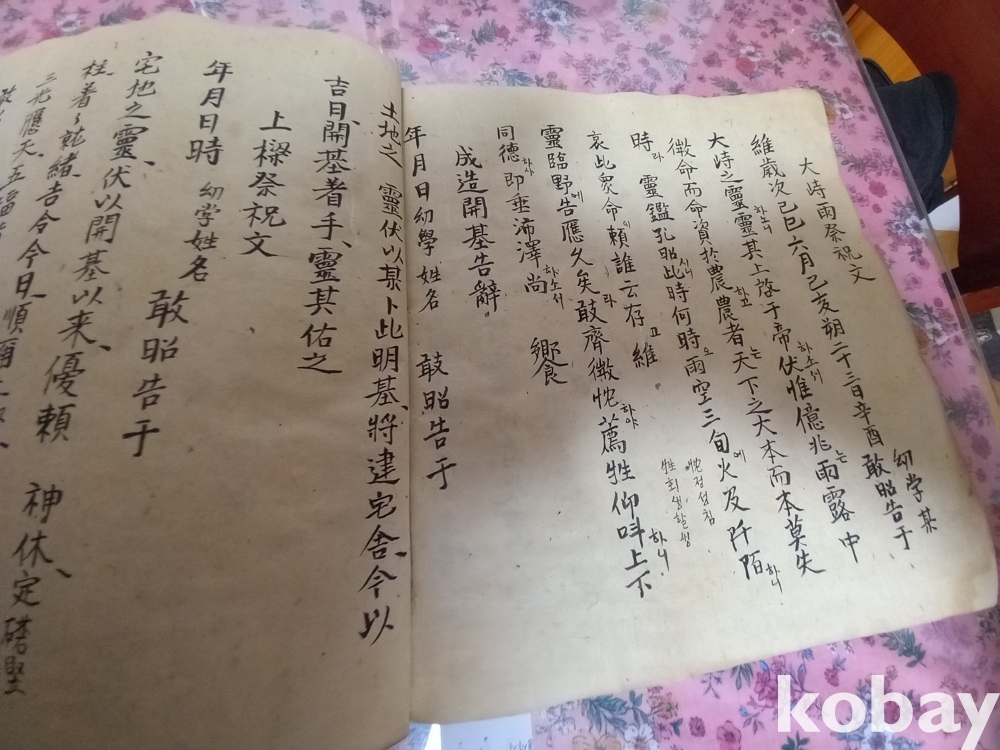 大峙雨祭祝文
維歲次己巳六月己亥朔二十三日辛酉 幼学某 敢昭告于
大峙之靈靈其上啓于帝하소서 伏惟億兆는 雨露中
微命而命資於農하고 農者는 天下之大本而本莫失
時라 靈鑑孔昭시니 此時何時오 雨空三旬에 火及阡陌하니
哀此衆命이 賴誰云存고 維
牲희생할생
靈臨野에 告應久矣라 敢齊微忱하야 薦牲仰叫上下하니
同德하사 即垂沛澤하소서 尚 饗
成造開基告辭
年月日幼學姓名 敢昭告于
土地之 靈伏以某卜此明基、將建宅舍、今以
吉日、開基着手、靈其佑之
上樑祭祝文
年月日時 幼学姓名 敢昭告于
宅地之靈、伏以開基以来、優賴 神休、定礎竪
柱、着々就緒、吉合今日、順
三光應天、五福